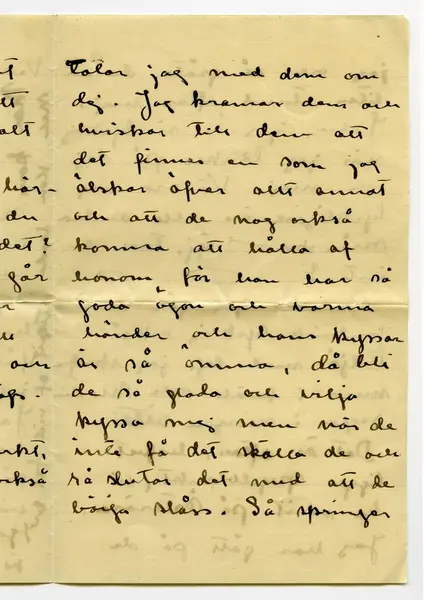 t
tt
alt
här-
du
det?
går
r
och
kt,
också
talar jag med dem om
dig. Jag kramar dem och
hviskar till dem att
det finnes en som jag
älskar öfver allt annat
och att de nog också
komma att hålla af
honom för han har så
goda ögon och varma
händer och hans kyssar
är så ömma, då bli
de så glada och vilja
kyssa mig men när de
inte få det skälla de och
så slutar det med att de
börja slåss. Så springer